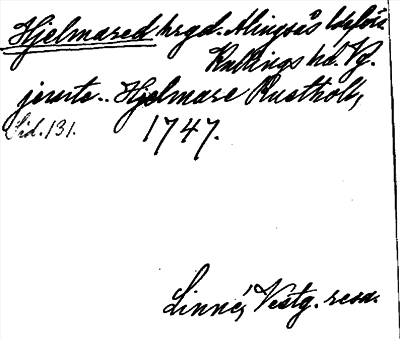 Hjelmared hrgd. Alingsås ldsförs
Kullings hd. Vg.
jemte.. Hjelmare Rusthold,
Sid. 131. 1747.
Linné, Vestg. resa.